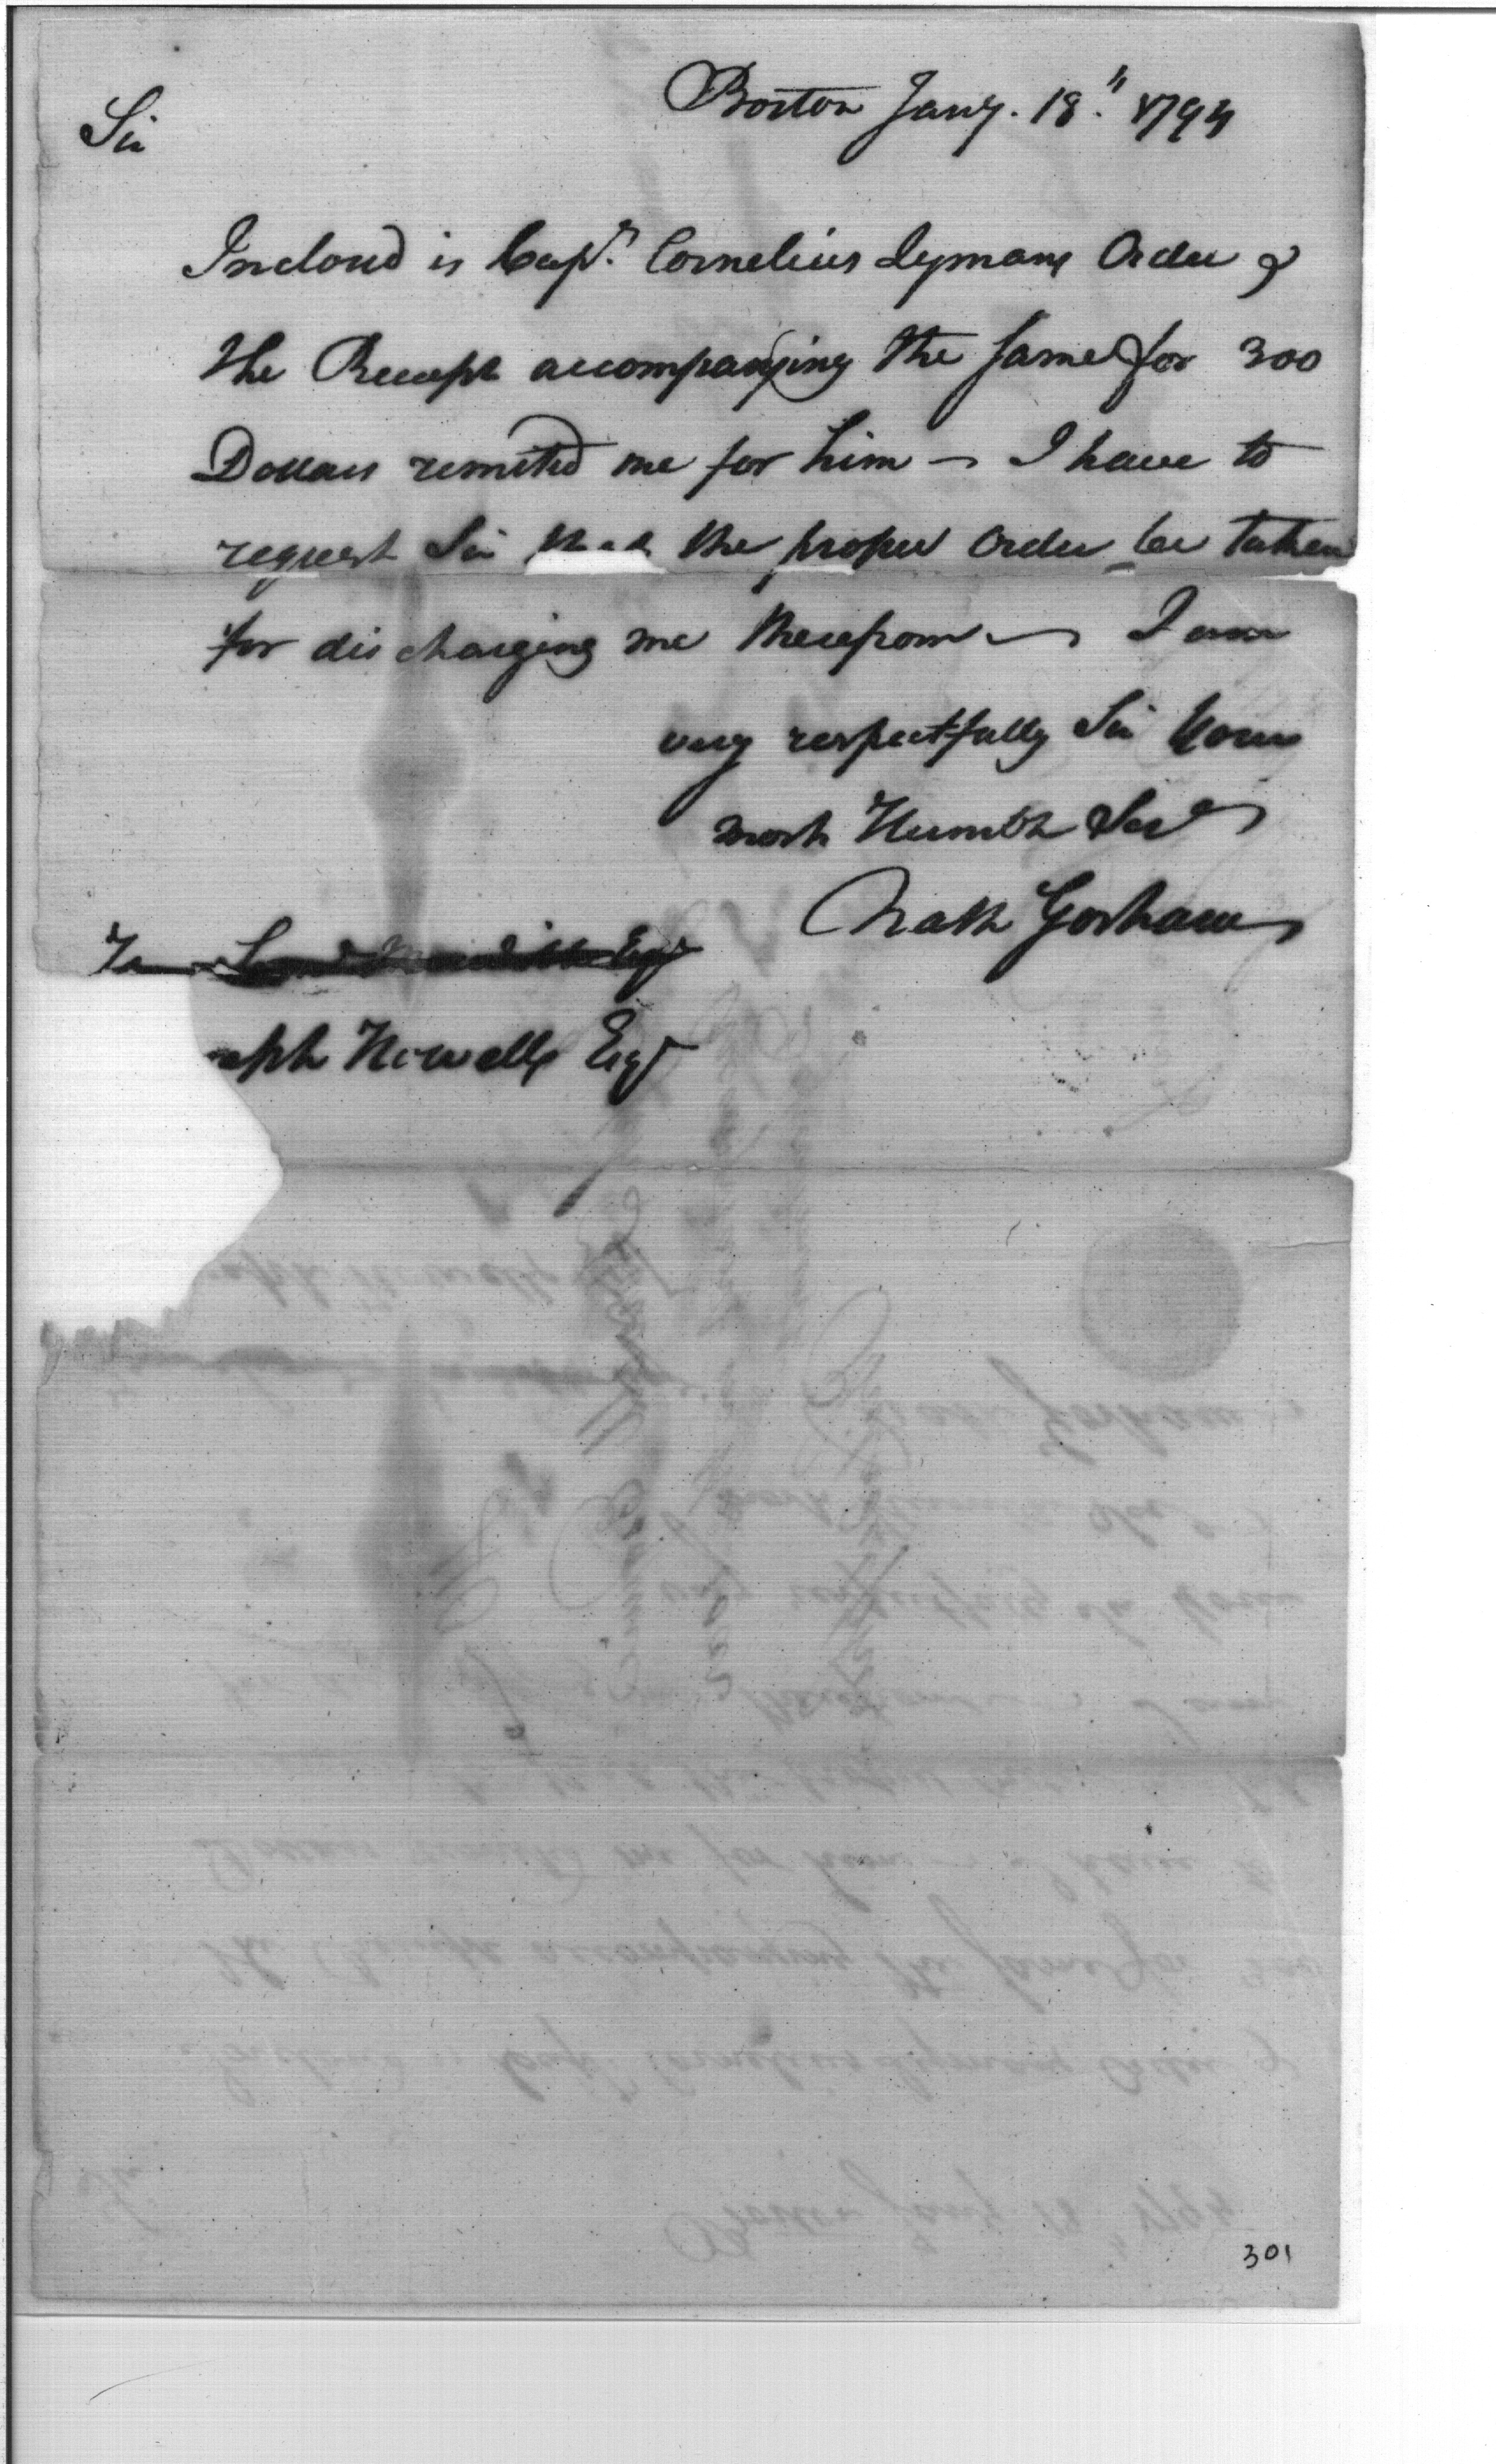 Boston Jany. 18." 1794
Sir
Inclosd is Capt. Cornelius Lymans Order &
the Receipt accompanying the same for 300
Dollars remitted me for him — I have to
request Sir that the proper Order be taken
for discharging me therefrom — I am
very respectfully Sir Your
most Humble Ser
Nath Gorham
To Esqr
eph Howell Esqr
301